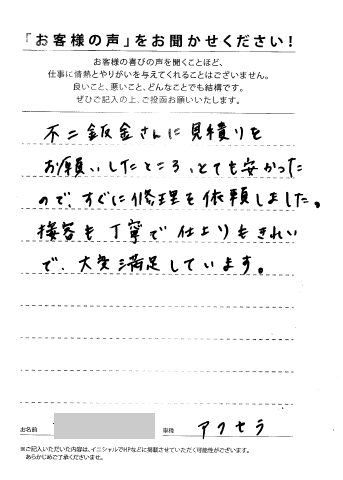 「お客様の声」をお聞かせください!
お客様の喜びの声を聞くことほど、
仕事に情熱とやりがいを与えてくれることはございません。
良いこと、悪いこと、どんなことでも結構です。
ぜひご記入の上、ご投函お願いいたします。
不二鈑金さんに見積りを
お願いしたところ、とても安かった
ので、すぐに修理を依頼しました。
接客も丁寧で仕上りもきれい
で、大変満足しています。
お名前
車種 アクセラ
※ご記入いただいた内容は、イニシャルでHPなどに掲載させていただく可能性がございます。
あらかじめご了承くださいませ。